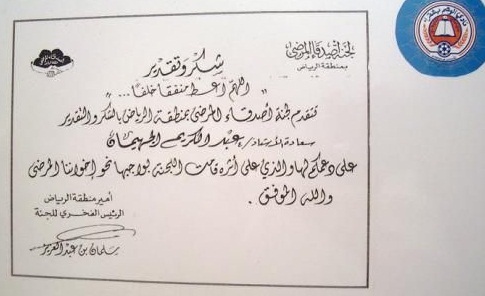 لجنة أصدقاء المرضى
بمنطقة الرياض
شكر وتقدير
" اللهم أعط منفقاً خلفاً ... "
تتقدم لجنة أصدقاء المرضى بمنطقة الرياض بالشكر والتقدير
سعادة الأستاذ / عبد الكريم الجهيمان
على دعمكم لها والذي على أثره قامت اللجنة بواجبها نحو إخواننا المرضى
والله الموفق .
أمير منطقة الرياض
الرئيس الفخري للجنة
سلمان بن عبد العزيز